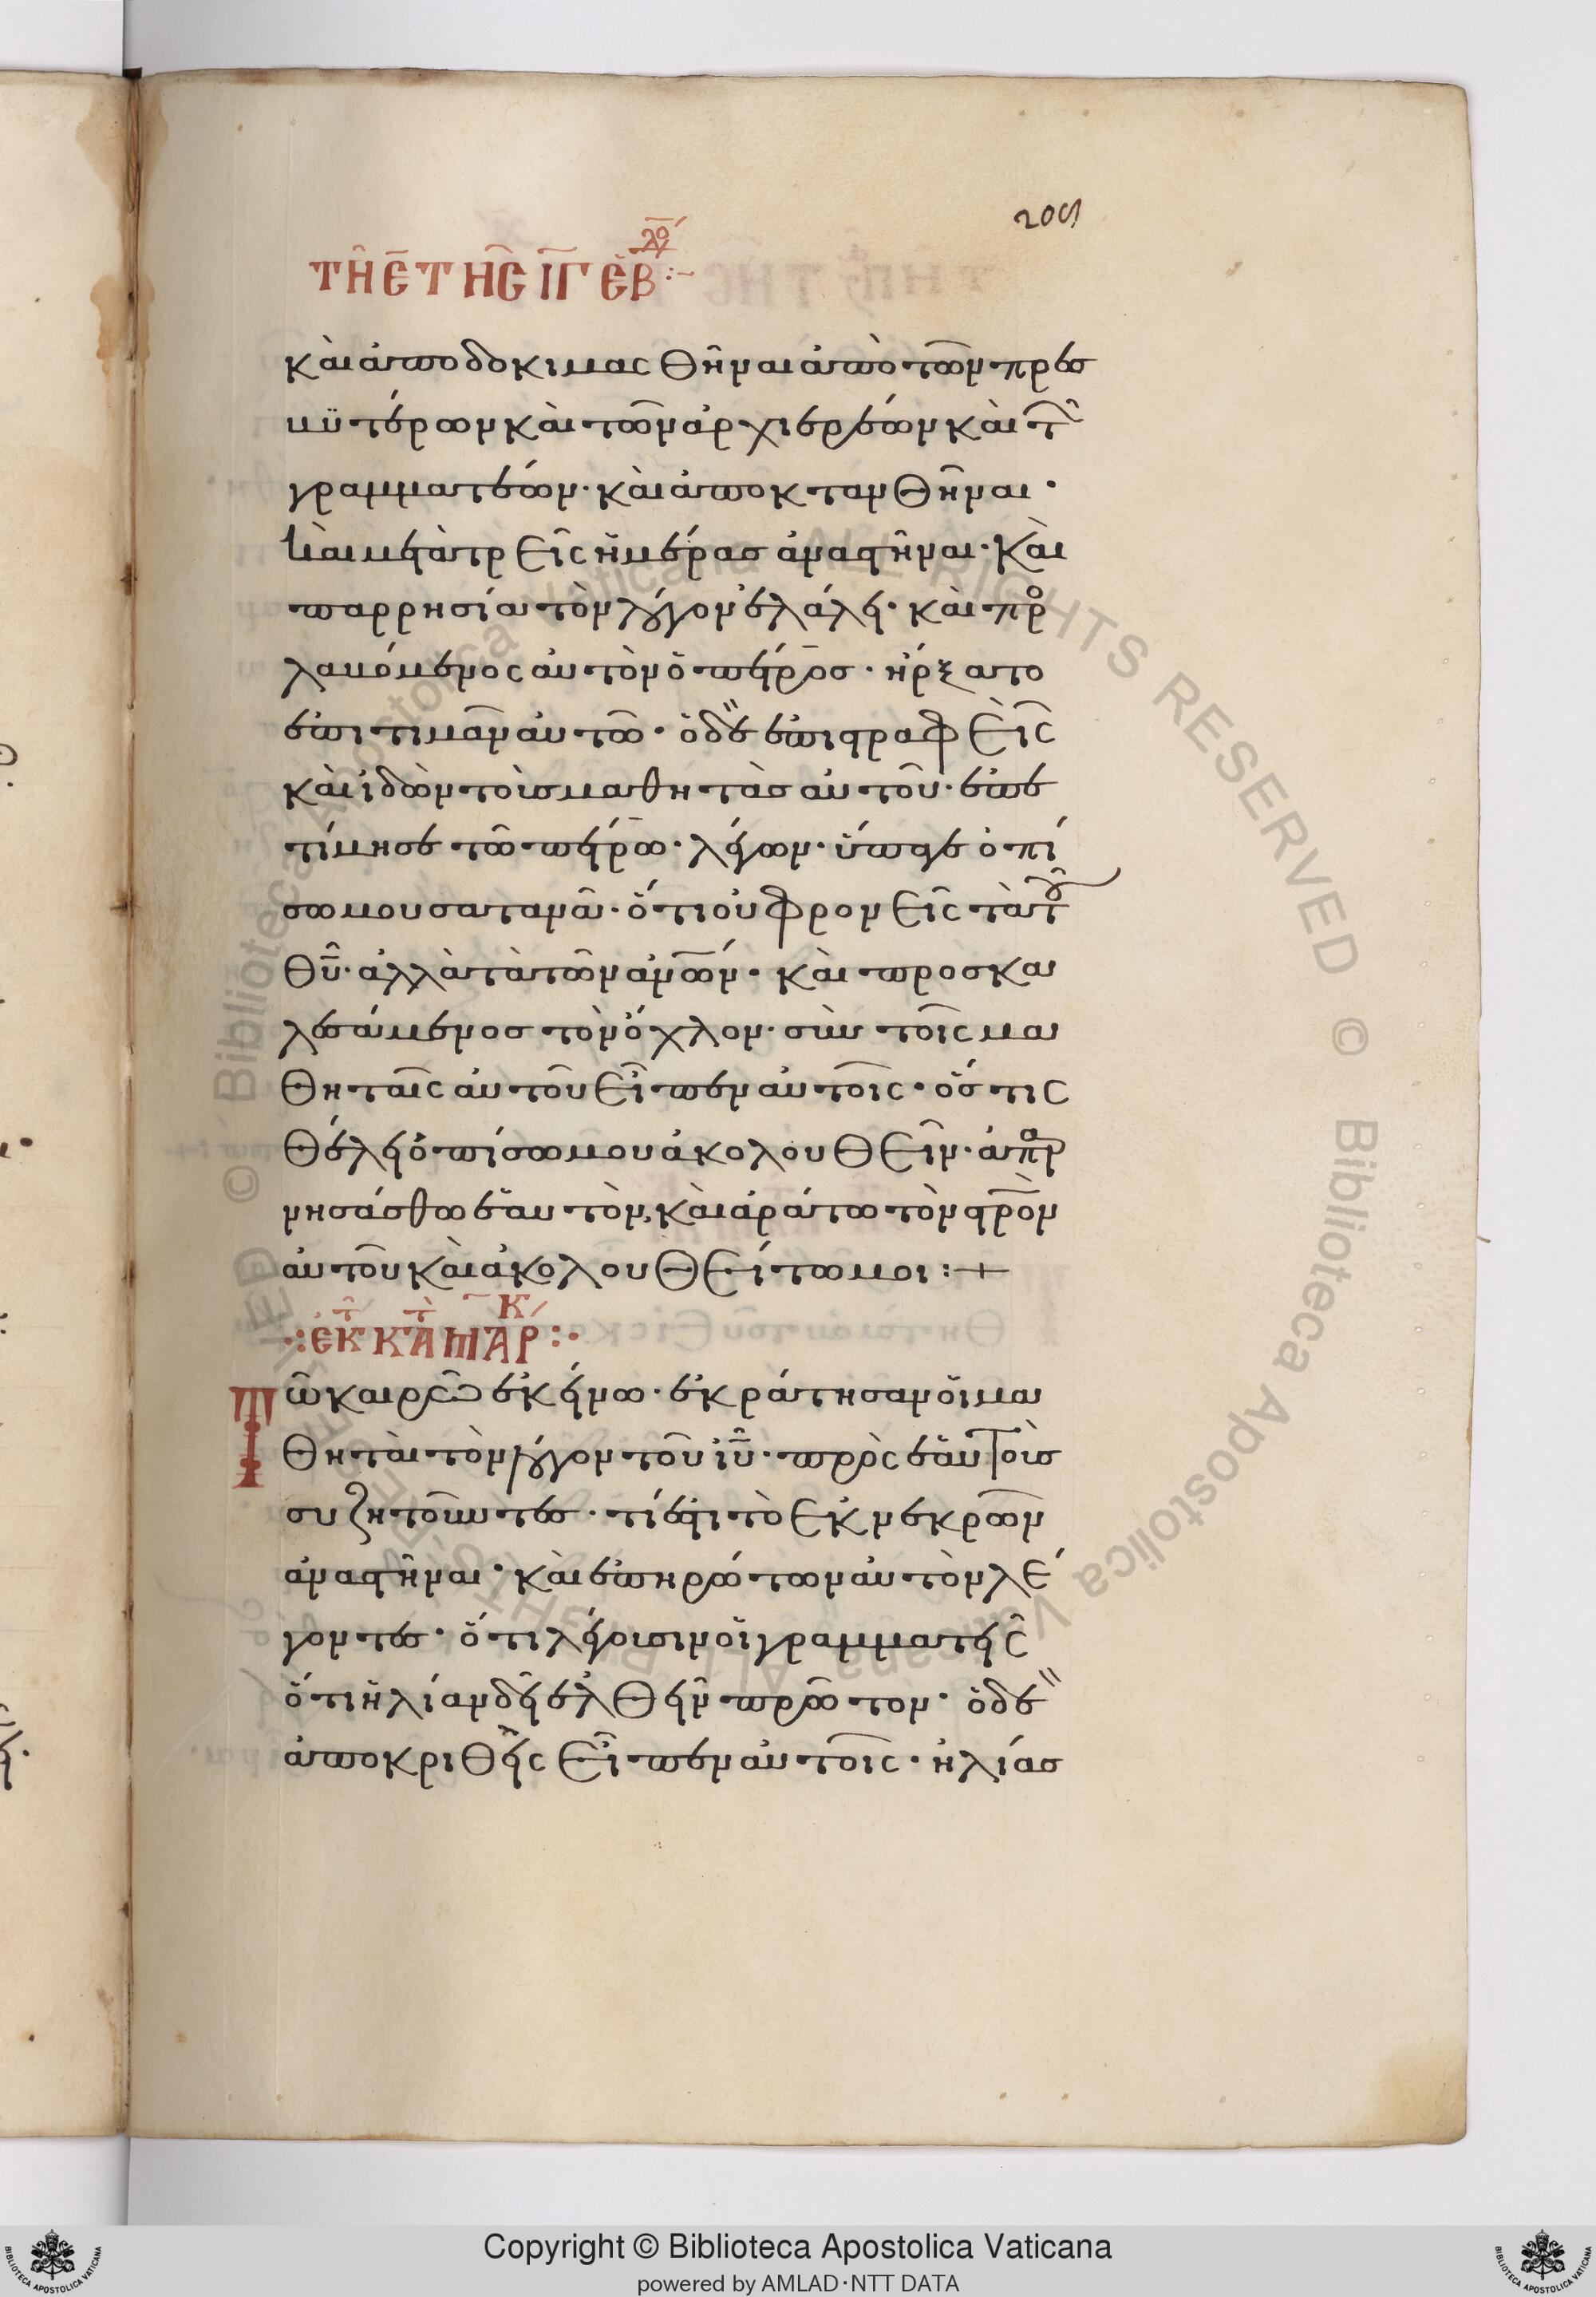 205
τῇ ε̄ τῆς ιγ ἑβδ :–
καὶ ἀποδοκιμασθῆναι ἀπὸ τῶν πρεσ
βϋτέρων καὶ τῶν ἀρχιερέων καὶ τ̑
γραμματέων· καὶ ἀποκτανθῆναι·
καὶ μετὰ τρεῖς ἡμέρας ἀναστῆναι· καὶ
παρρησία τὸν λόγον ἐλάλει· καὶ προ
λαβόμενος αὐτὸν ὁ πέτρος· ἤρξατο
ἐπιτιμᾶν αὐτῶ· ὁ δὲ ἐπιστραφεὶς
καὶ ἰδὼν τοὺς μαθητὰς αὐτοῦ· ἐπε
τίμησε τῶ πέτρω· λέγων· ὕπαγε ὀπί
σω μου σατανᾶ· ὅτι οὐ φρονεῖς τὰ τοῦ
θῡ· ἀλλὰ τὰ τῶν ἀν̄ων· καὶ προσκα
λεσάμενος τὸν ὄχλον· σὺν τοῖς μα
θηταῖς αὐτοῦ εἶπεν αὐτοῖς· ὅστις
θέλει ὀπίσω μου ἀκολουθεῖν· ἀπαρ
νησάσθω ἑαυτὸν, καὶ ἀράτω τὸν στ̅ρὸν
αὐτοῦ καὶ ἀκολουθείτω μοι :+
·:ἐκ τ̑ κατὰ μάρκ :·
Τῶ καιρῶ ἐκείνω· ἐκράτησαν οἱ μα
θηταὶ τὸν λόγον τοῦ ιῡ· πρὸς ἑαυτοὺς
συζητοῦντες· τί ἐστι τὸ ἐκ νεκρῶν
ἀναστῆναι· καὶ ἐπηρώτων αὐτὸν λέ
γοντες· ὅτι λέγουσιν οἱ γραμματεῖς
ὅτι ἡλίαν δεῖ ἐλθεῖν πρῶτον· ὁ δὲ
ἀποκριθεὶς εἶπεν αὐτοῖς· ἡλίας
Copyright © Biblioteca Apostolica Vaticana
powered by AMLAD·NTT DATA